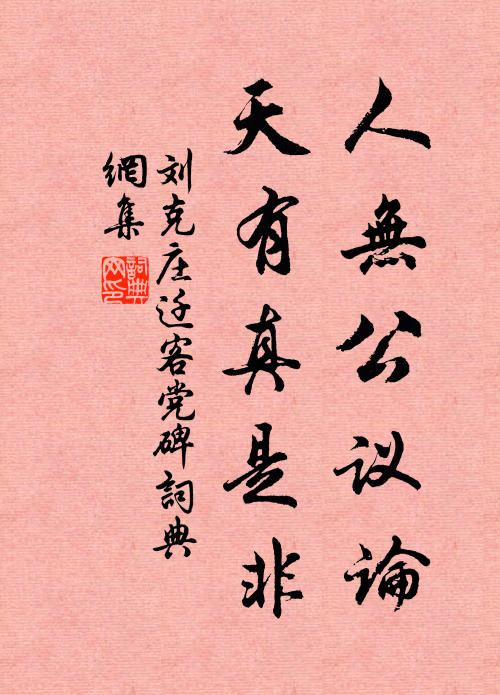 人無公议論
天有真是非
刘克庄迁客党碑詞典
網集
詞典網印